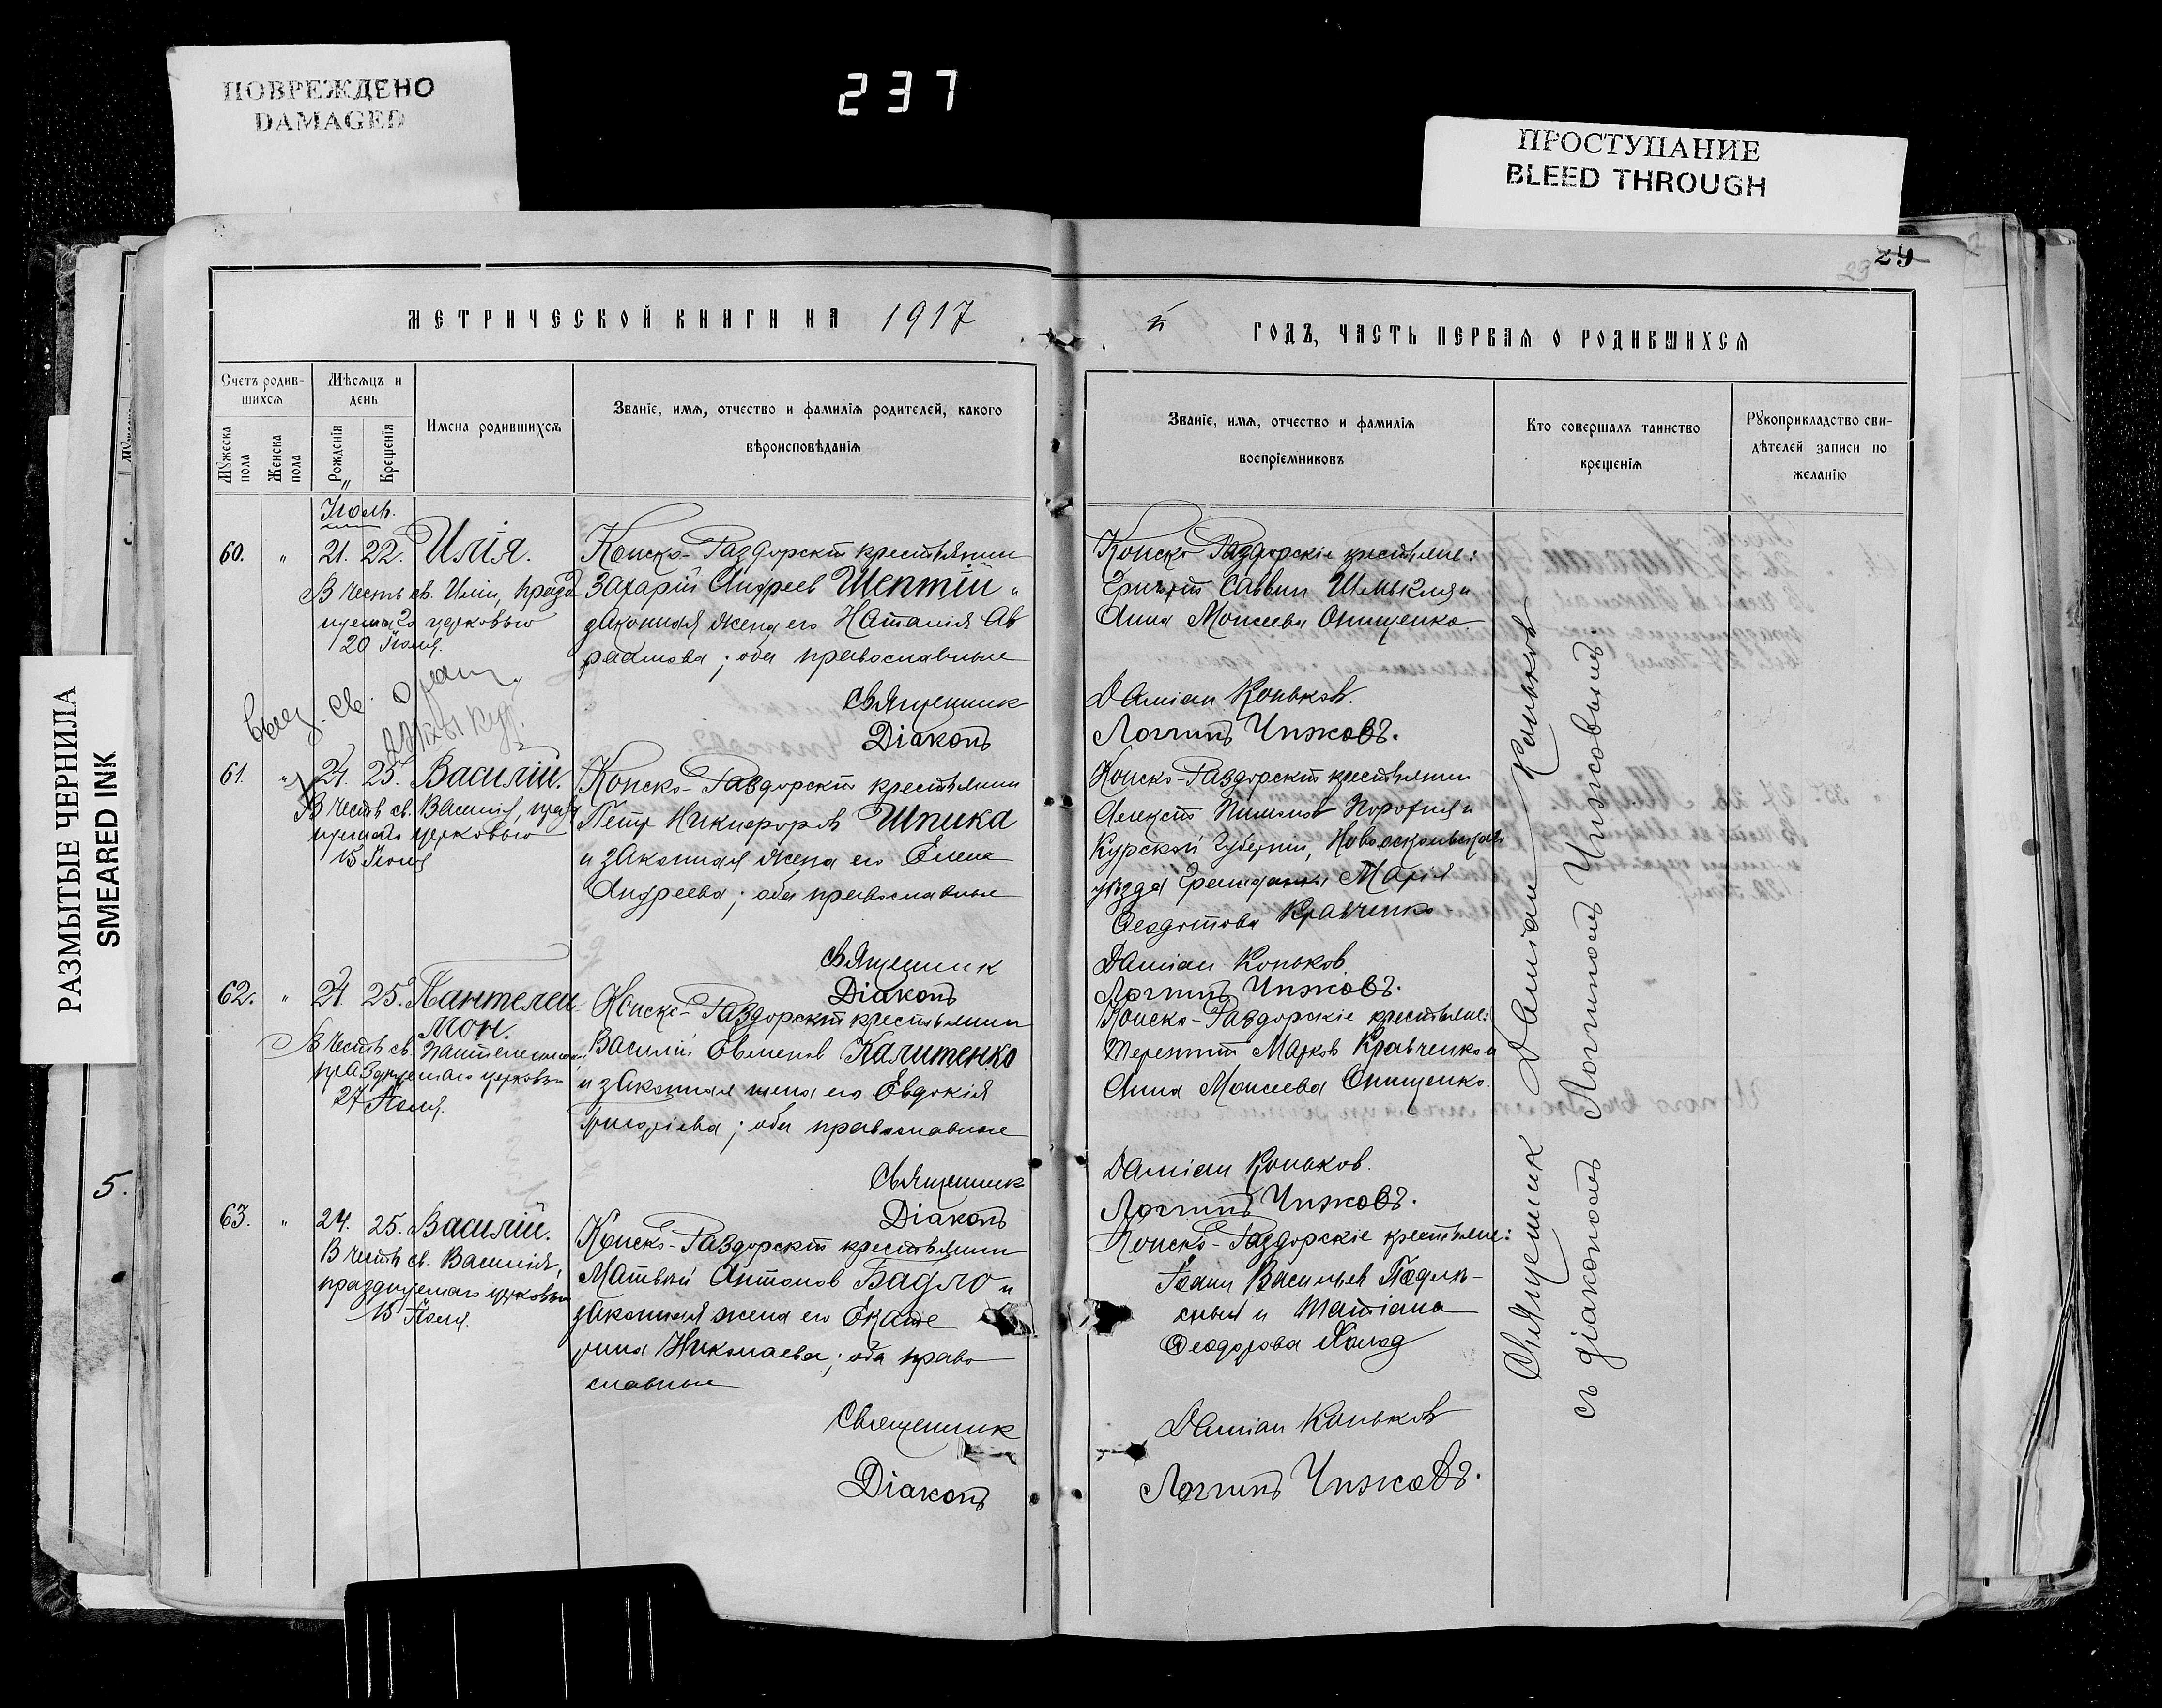 ПОВРЕЖДЕНО
DAMAGED
237
ПРОСТУПАНИЕ
BLEED THROUGH
РАЗМЫТЫЕ ЧЕРНИЛА
SMEARED INK
5.
29
МЕТРИЧЕСКОЙ КНИГИ НА 1917
й ГОДЪ, ЧАСТЬ ПЕРВАЯ О РОДИВШИХСЯ
Счетъ родив-
шихся
Мужеска пола
Женска пола
Мѣсяцъ и
день
Рожденія
Крещенія
Имена родившихся
Званіе, имя, отчество и фамилія родителей, какого
вѣроисповѣданія
Званіе, имя, отчество и фамилія
воспріемниковъ
Кто совершалъ таинство
крещенія
Рукоприкладство сви-
дѣтелей записи по
желанію
Іюль.
60. " 21. 22. Илія.
В честь св. Иліи, празд
нуемаго церковью
20 Іюля.
Конско-Раздорскій крестьянин
Захарій Андреев Шептій и
законная жена его Наталія Ав
раамова; оба православные
Священник
Діаконъ
Конско-Раздорскіе крестьяне:
Григорій Саввин и
Анна Моисеева Онищенко
Даміан Коньков.
Логгинъ Чижовъ.
61. " 24. 25. Василій.
В честь св. Василія, празд
нуемаго церковью
15 Іюля
Конско-Раздорскій крестьянин
Петр Никифоров Шпика
и законная жена его Елена
Андреева; оба православные
Священник
Діаконъ
Конско-Раздорскій крестьянин
Алексій Пименов и
Курской Губерніи, Новооскольскаго
уѣзда гражданка Марія
Феодотова Кравченко
Даміан Коньков
Логгинъ Чижовъ.
62. " 24. 25. Пантелеи-
мон.
В честь св. Пантелеимона,
празднуемаго церковью
27 Іюля.
Конско-Раздорскій крестьянин
Василій Евменов Калитенко
и законная жена его Евдокія
Григоріева; оба православные
Священник
Діаконъ
Конско-Раздорскіе крестьяне:
Терентій Марков Кравченко и
Анна Моисеева Онищенко.
Даміан Коньков.
Логгинъ Чижовъ.
63. " 24. 25. Василій.
В честь св. Василія,
празднуемаго церковью
15 Іюля.
Конско-Раздорскій крестьянин
Матвѣй Антонов Бадло и
законная жена его Екате
рина Николаева; оба право
славные
Священник
Діаконъ
Конско-Раздорскіе крестьяне:
Іоанн Васильев
и Татіана
Феодорова Холод
Даміан Коньков
Логгинъ Чижовъ.
Священник Даміан Коньков
съ діакономъ Логгиномъ Чижовымъ.